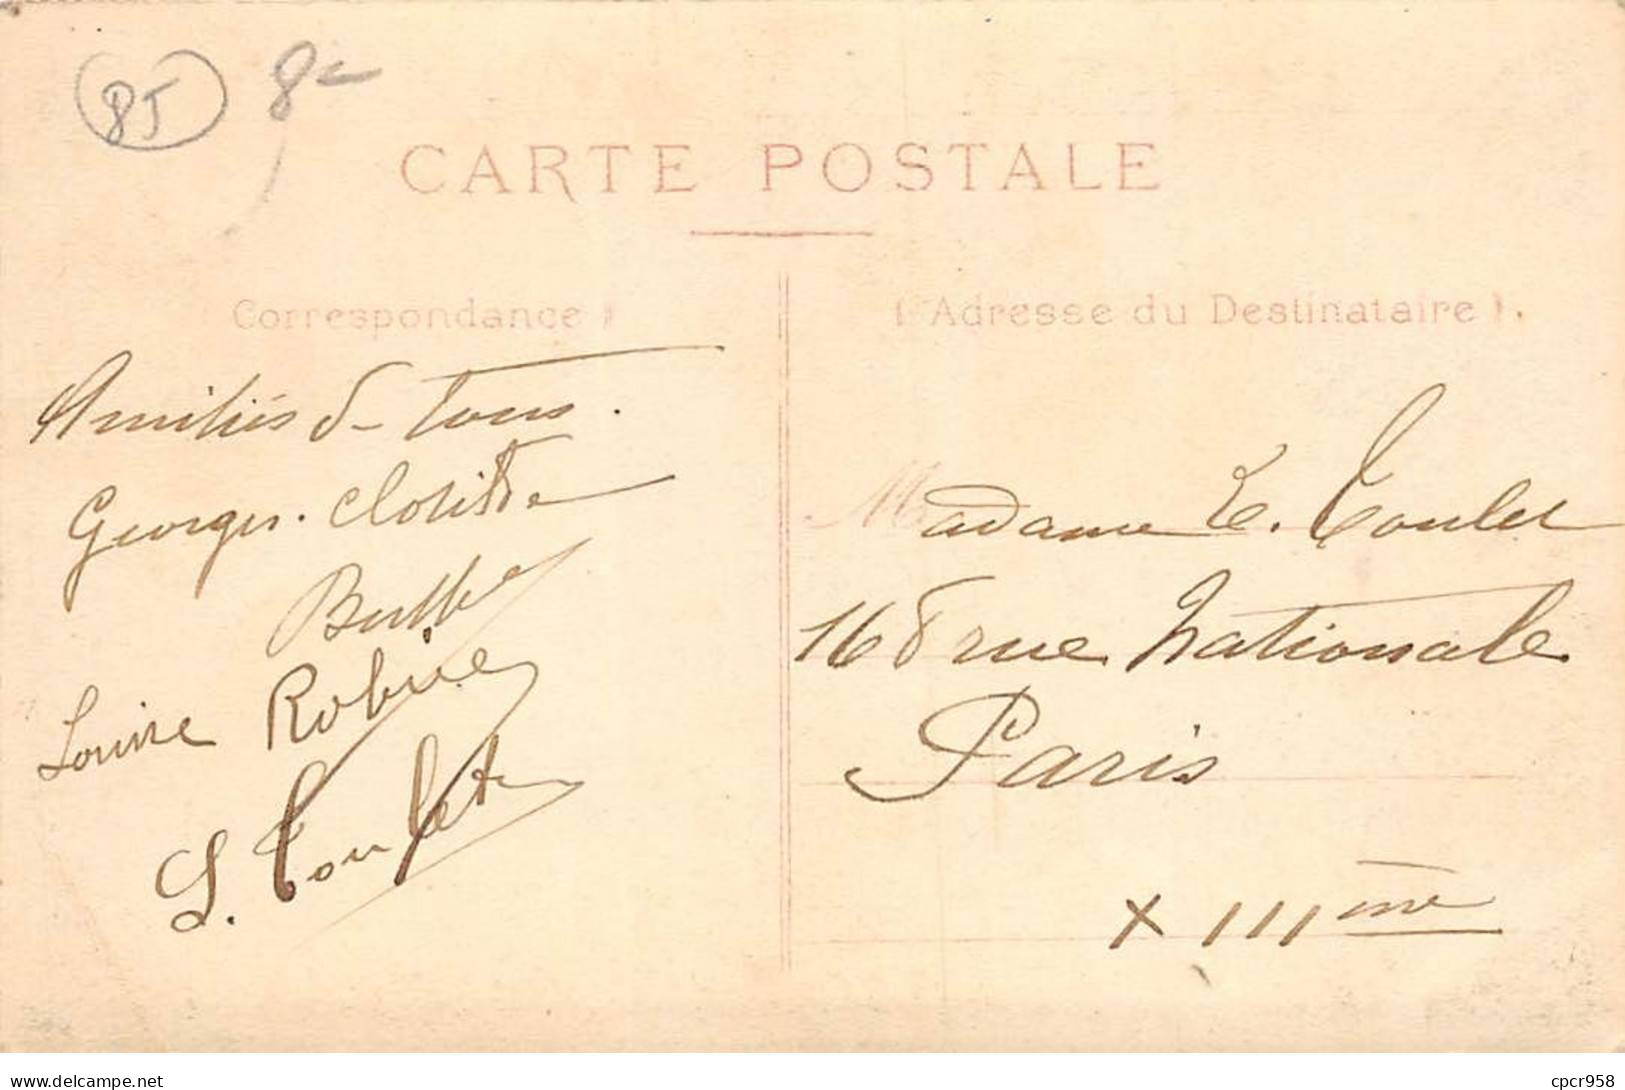 85 8-
CARTE POSTALE
Correspondance
Amitiés de tous.
Georges. Clotilde
Berthe
Louise Robine
L. Toulet
( Adresse du Destinataire ).
Madame E. Toulet
168 rue Nationale
Paris
XIIIème
www.delcampe.net
cpcr958